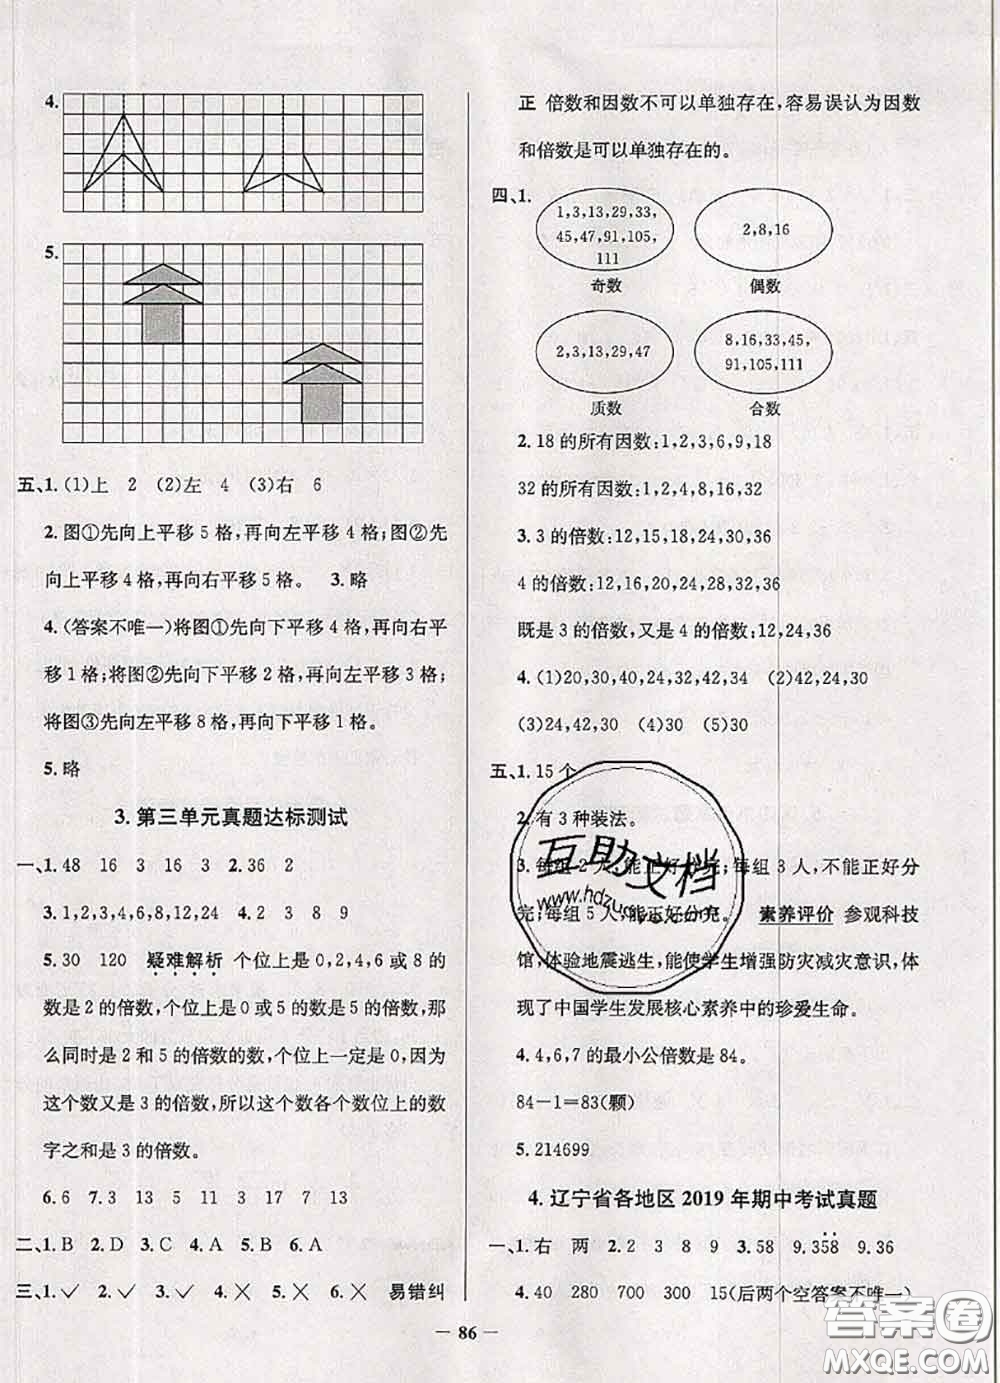 4.
5.
五、1.(1)上 2 (2)左 4 (3)右 6
2.图①先向上平移5格,再向左平移4格;图②先
向上平移4格,再向右平移5格。 3.略
4.(答案不唯一)将图①先向下平移4格,再向右平
移1格;将图②先向下平移2格,再向右平移3格;
将图③先向左平移8格,再向下平移1格。
5.略
3.第三单元真题达标测试
一、1.48 16 3 16 3 2.36 2
3.1,2,3,4,6,8,12,24 4.2 3 8 9
5.30 120 疑难解析 个位上是0,2,4,6或8的
数是2的倍数,个位上是0或5的数是5的倍数,那
么同时是2和5的倍数的数,个位上一定是0,因为
这个数又是3的倍数,所以这个数各个数位上的数
字之和是3的倍数。
6.6 7.3 13 5 17 5 13
二、1.B 2.D 3.C 4.A 5.B 6.A
三、1.✓ 2.✓ 3.✓ 4.✕ 5.✕ 6.✕ 易错纠
正 倍数和因数不可以单独存在,容易误认为因数
和倍数是可以单独存在的。
四、1.
1,3,13,29,33,
45,47,91,105,
111
奇数
2,8,16
偶数
2,3,13,29,47
质数
8,16,33,45,
91,105,111
合数
2.18的所有因数:1,2,3,6,9,18
32的所有因数:1,2,4,8,16,32
3.3的倍数:12,15,18,21,24,27,30,33,36
4的倍数:12,16,20,24,28,32,36
既是3的倍数,又是4的倍数:12,24,36
4.(1)20,30,40,24,32,42,34 (2)42,24,30
(3)24,42,30 (4)30 (5)30
五、1.15个
2.有3种装法。
3.每组2人,能正好分完;每组3人,不能正好分
完;每组5人,能正好分完。 素养评价 参观科技
馆,体验地震逃生,能使学生增强防灾减灾意识,体
现了中国学生发展核心素养中的珍爱生命。
4.4,6,7的最小公倍数是84。
84-1=83(颗)
5.214699
4.辽宁省各地区2019年期中考试真题
一、1.右 两 2.2 3 8 9 3.58 9.3̇5̇8̇ 9.36
4.40 280 700 300 15(后两个空答案不唯一)
— 86 —
互助文档
www.hdzuoye.com
答案圈
MXQE.COM